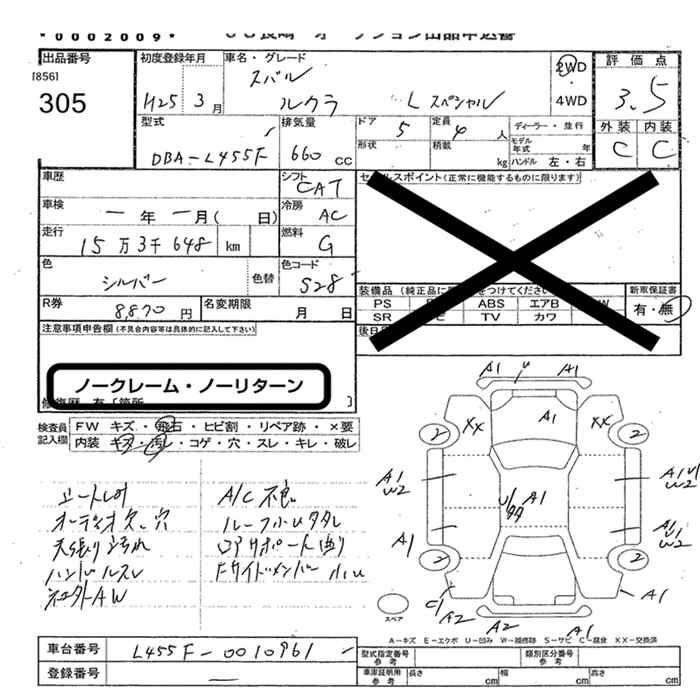 *0002009*
出品番号
[856]
305
初度登録年月
H25 3 月
車名・グレード
スバル
ルクラ L スペシャル
2WD
・
4WD
評価点
3.5
外装 内装
C C
型式
DBA-L455F
排気量
660 CC
ドア 5
定員 4 人
形状
積載 kg
ディーラー・並行
モデル年式 年
ハンドル 左・右
車歴
車検
一 年 一 月( 日)
走行
15万3千648 km
シフト
CAT
冷房
AC
燃料
G
色
シルバー
色替
色コード
S28
R券
8,870 円
名変期限
月 日
セールスポイント(正常に機能するものに限ります)
装備品
PS ABS エアB
SR TV カワ
新車保証書
有・無
注意事項申告欄(不具合内容等は具体的に記入して下さい)
ノークレーム・ノーリターン
検査員
記入欄
FW キズ・飛石・ヒビ割・リペア跡・×要
内装 キズ・汚レ・コゲ・穴・スレ・キレ・破レ
A/C 不良
天張り汚れ
ハンドルスレ
社外AW
A1 U A1
XX A1 XX
2 2
A1
W2
U1
A1
A1 U1
W2
A1
U1
W2
2 2
C1
A2
A2 A1
A1
スペア
A－キズ E－エクボ U－凹み W－補修跡 S－サビ C－腐食 XX－交換済
車台番号
L455F-0010961
登録番号
一
型式指定番号
参考
類別区分番号
参考
車庫証明用
参考
長さ cm
幅 cm
高さ cm